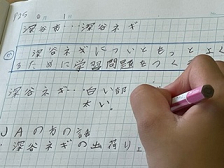 深谷市 深谷ネギ
深谷ネギについてもっとよく
ために学習問題をつく
深谷ネギ・白い部
太い。
Aの方の話
・深谷ネギの出荷り